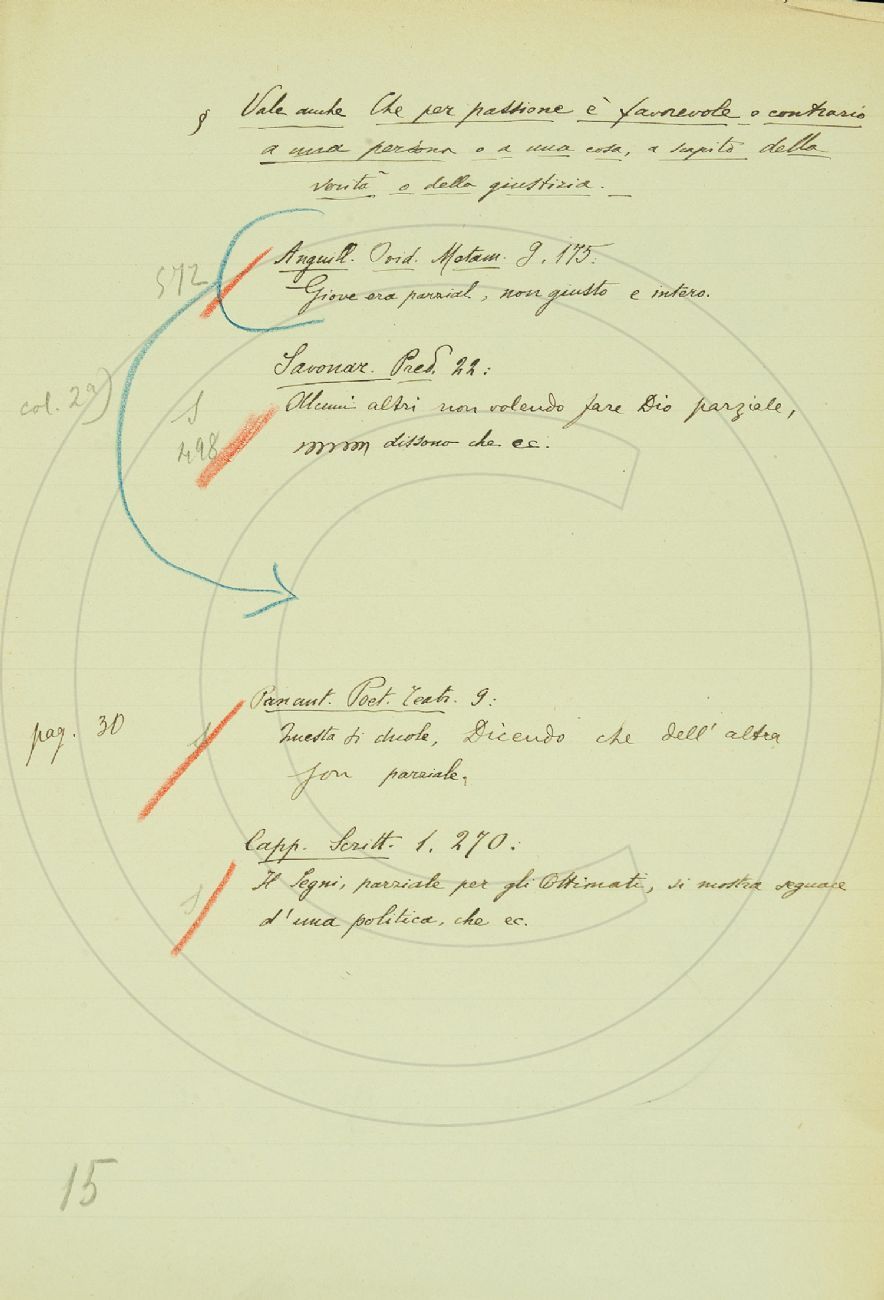 § Vale anche Che per passione è favorevole o contrario
a una persona o a una cosa, a scapito della
verità o della giustizia.
Anguill. Ovid. Metam. 9. 175:
572
Giove era parzial, non giusto e intero.
Savonar. Pred. 22:
col. 2a)
S
Alcuni altri non volendo fare Dio parziale,
498
dissono che ec.
Panant. Poet. Teatr. 9:
pag. 30
S
Questa si duole, Dicendo che dell' altra
son parziale,
Capp. Scritt. 1. 270:
Il Segni, parziale per gli Ottimati, si mostra seguace
S
d'una politica, che ec.
15